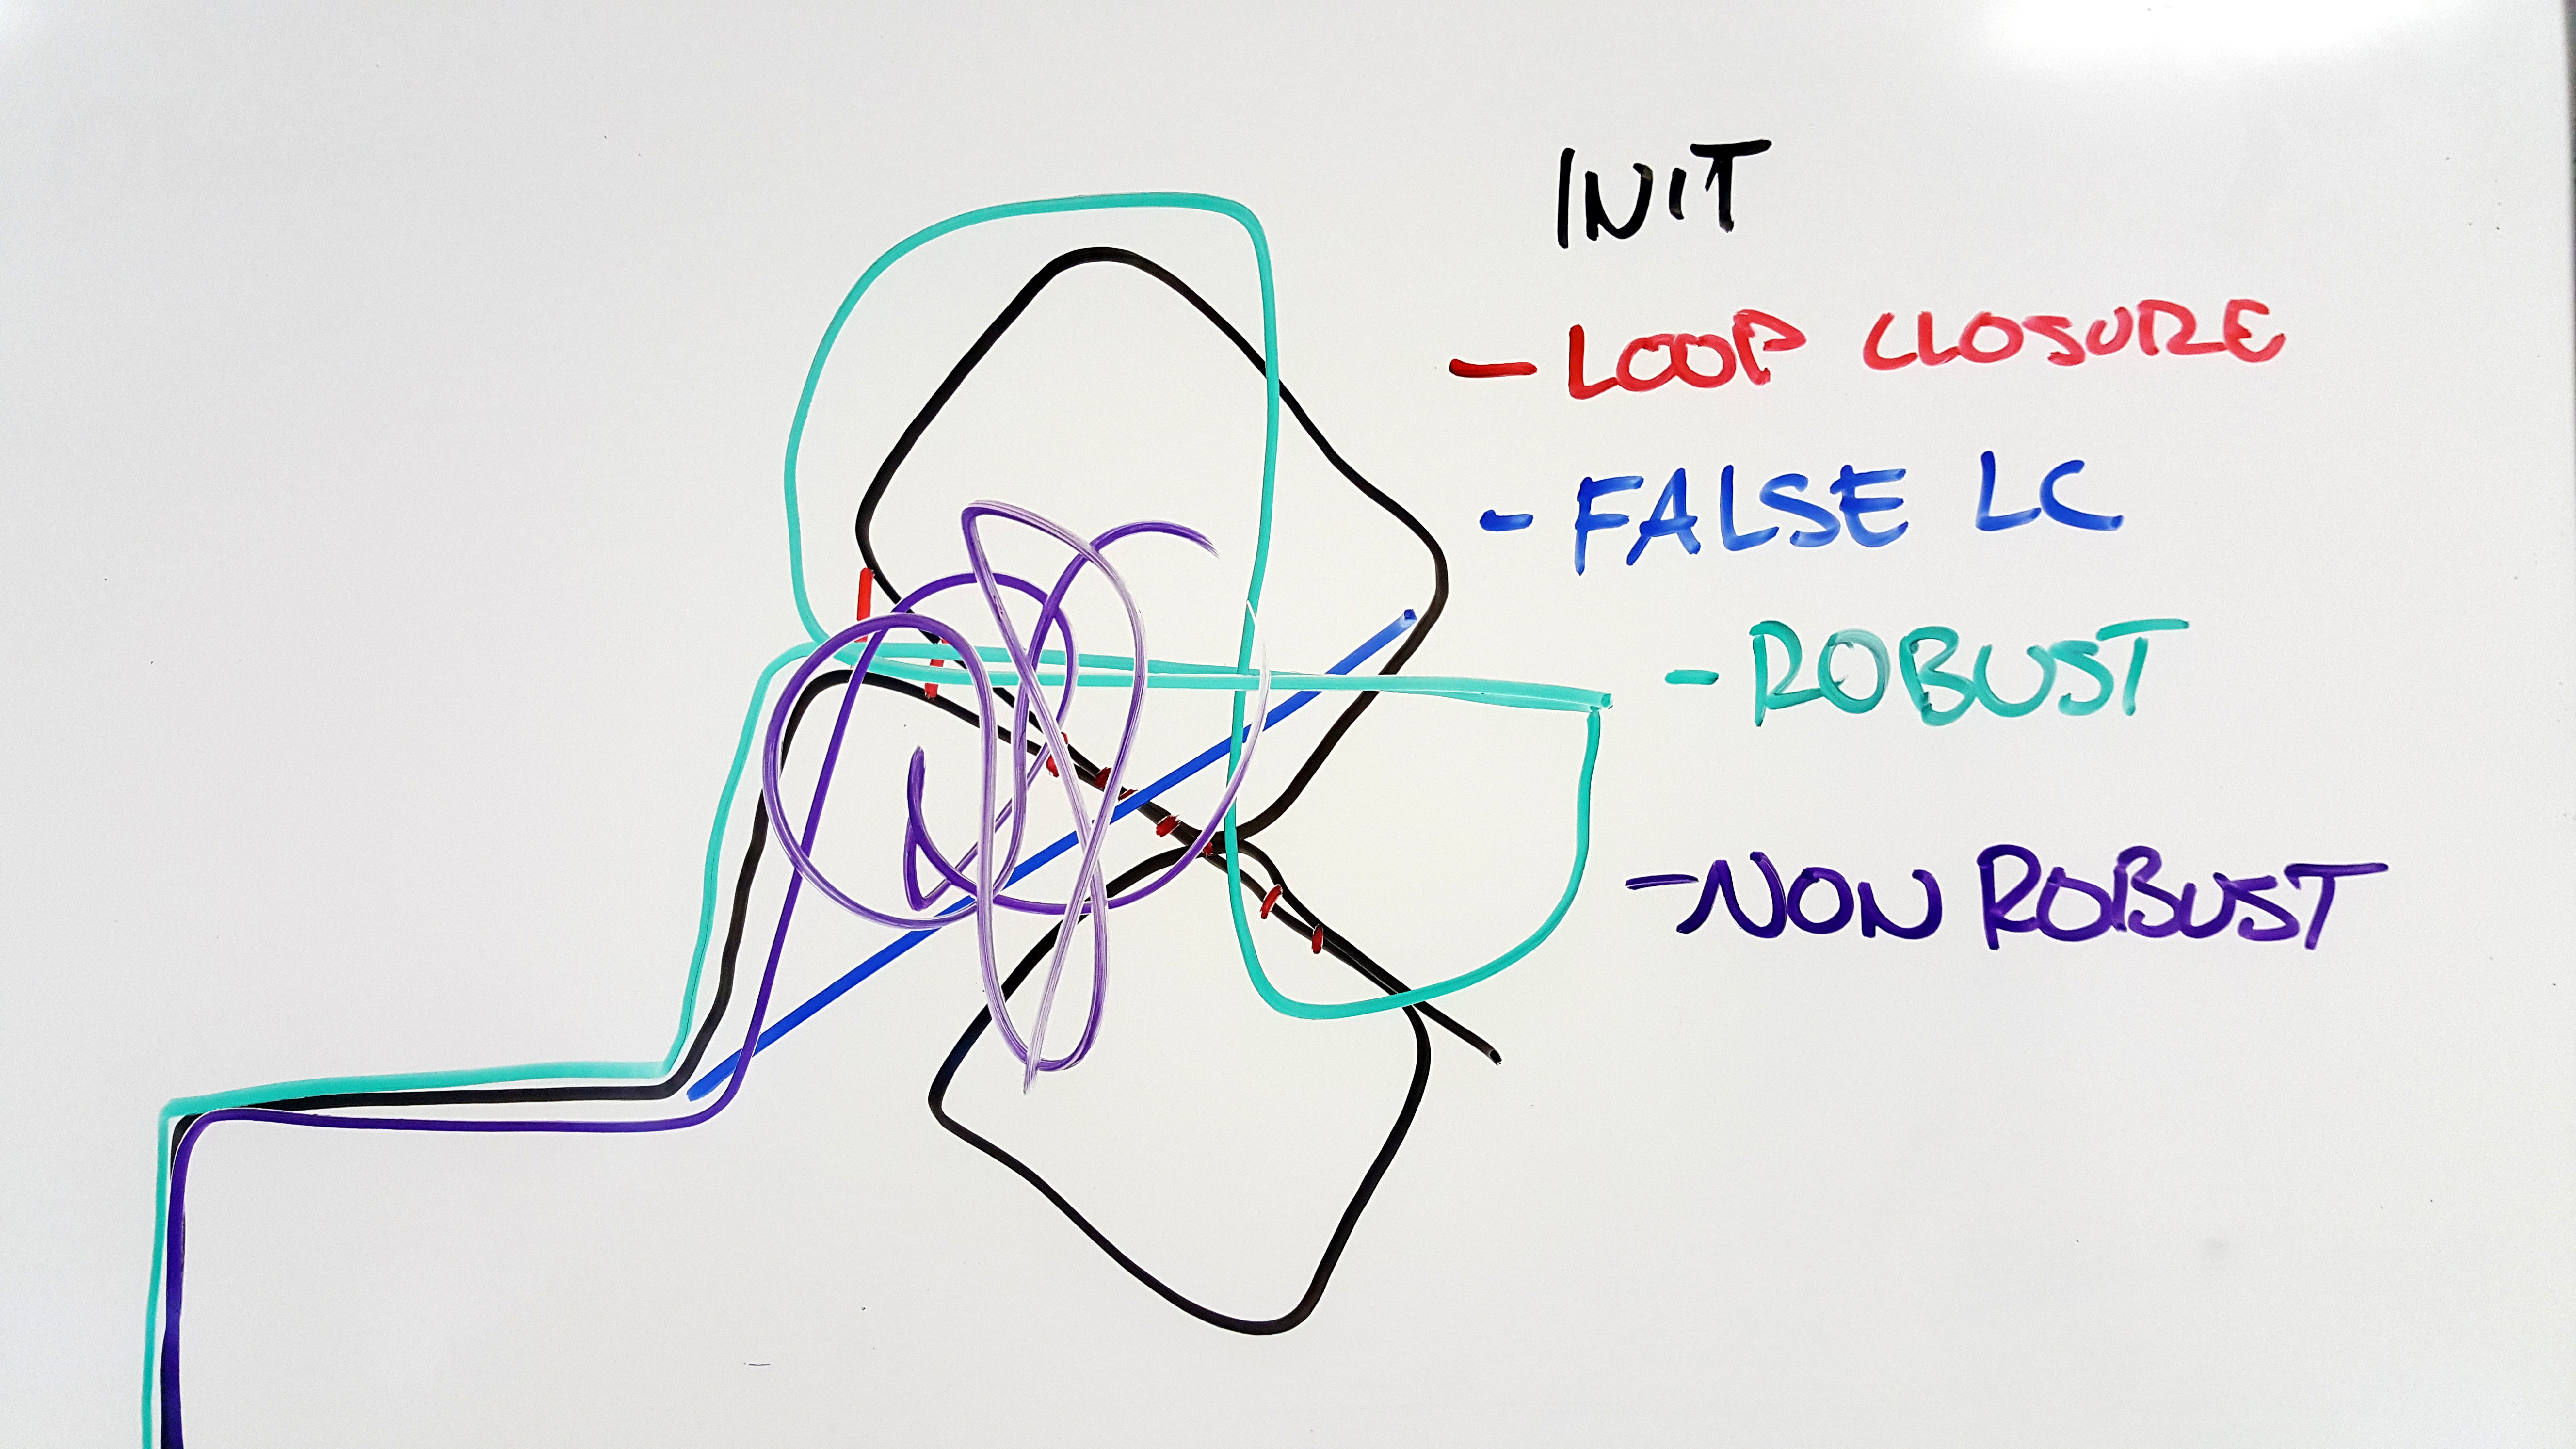 INIT
- LOOP CLOSURE
- FALSE LC
- ROBUST
- NON ROBUST